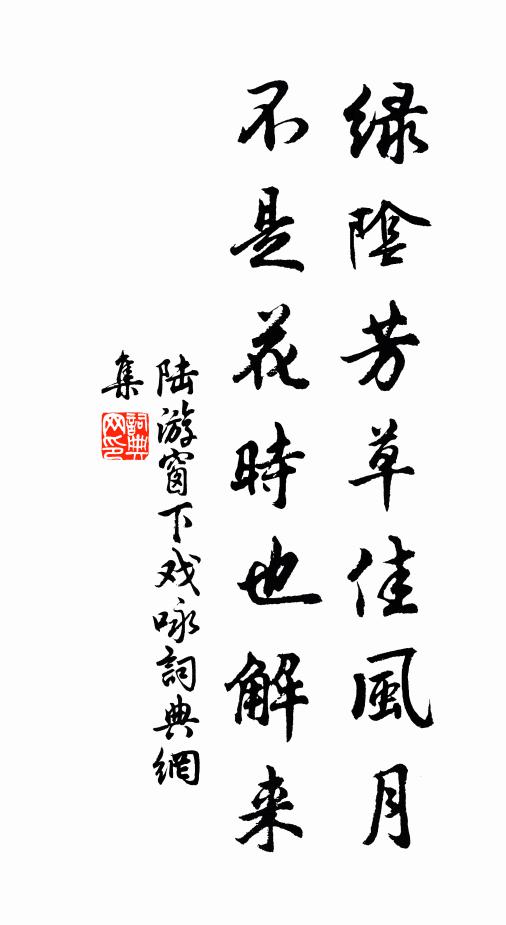 绿陰芳草佳風月
不是花時也解来
陆游窗下戏咏詞典網
集
詞典网印